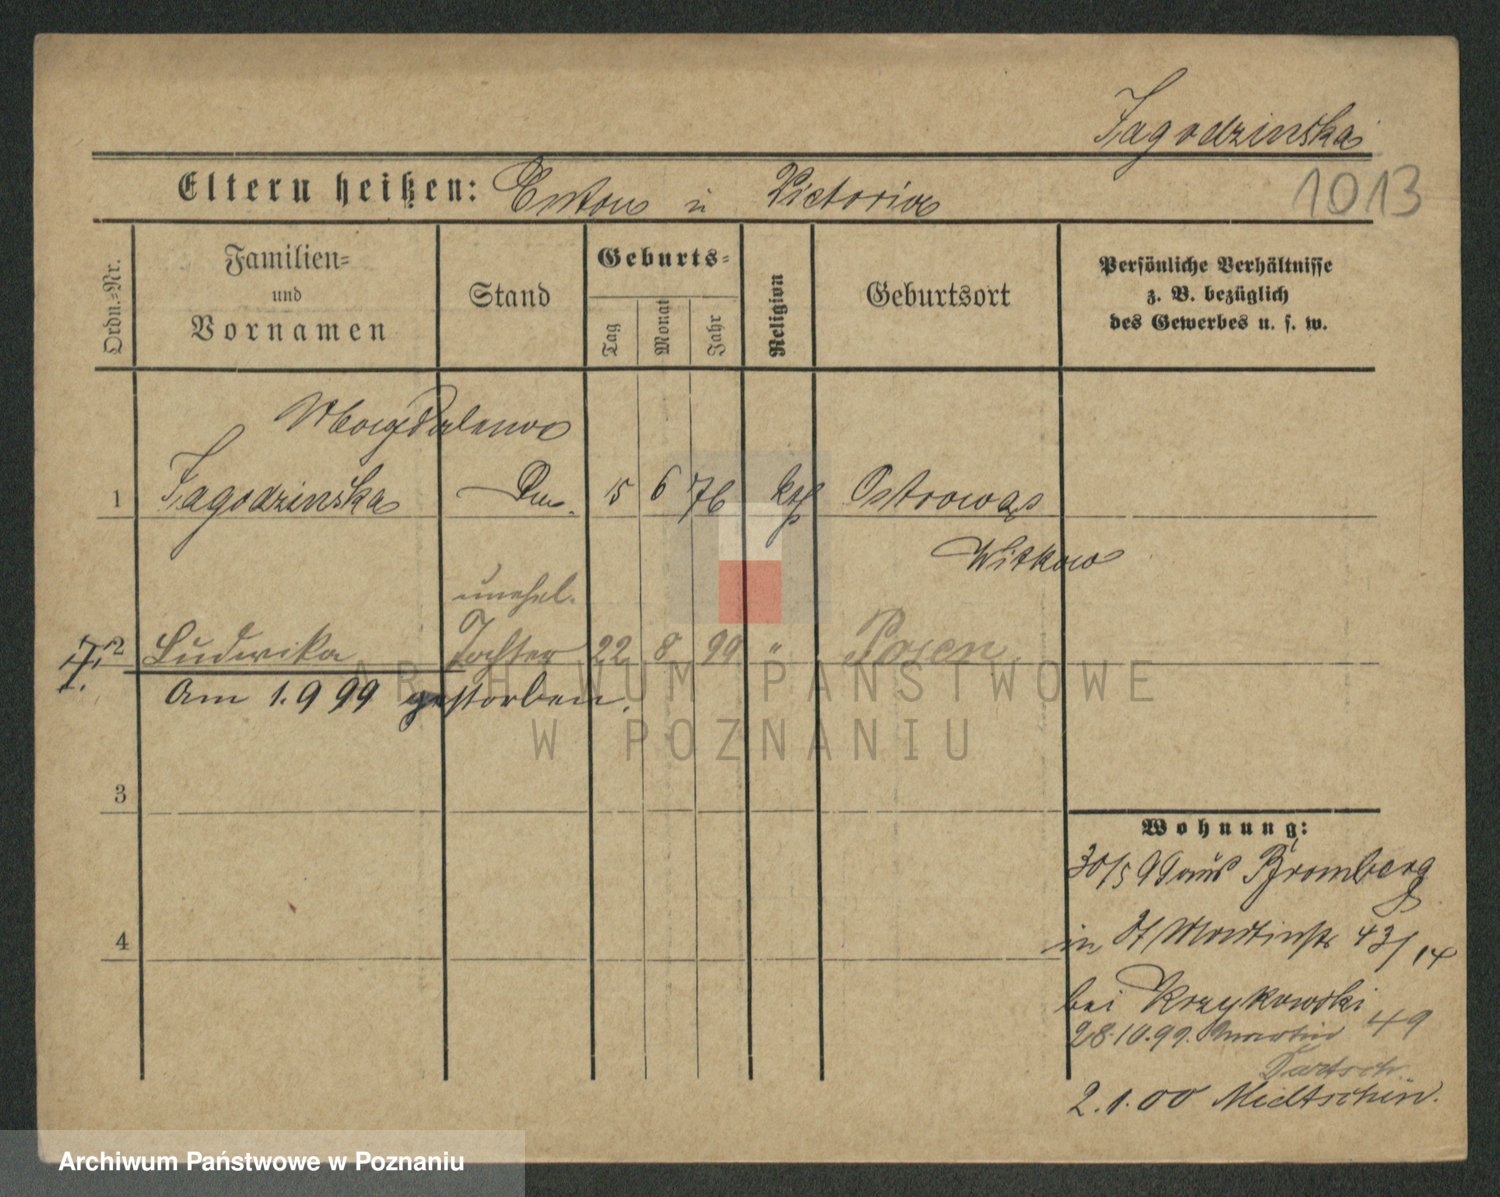 Jagodzinska
1013
Eltern heißen: Anton u Victoria
Ordn.=Nr.
Familien=
und
Vornamen
Stand
Geburts=
Tag
Monat
Jahr
Religion
Geburtsort
Persönliche Verhältnisse
z. B. bezüglich
des Gewerbes u. s. w.
Magdalena
1 Jagodzinska 15 6 76 kth Ostrowo
Witkow
unehel.
2 Ludwika Tochter 22 8 99 " Posen
Am 1.9 99 gestorben.
3
4
Wohnung:
30/5 99 aus Bromberg
in St Martinstr 43/14
bei Krzykowski
28.10.99. Martin 49
Bartsch
2.1.00
ARCHIWUM PAŃSTWOWE
W POZNANIU
Archiwum Państwowe w Poznaniu